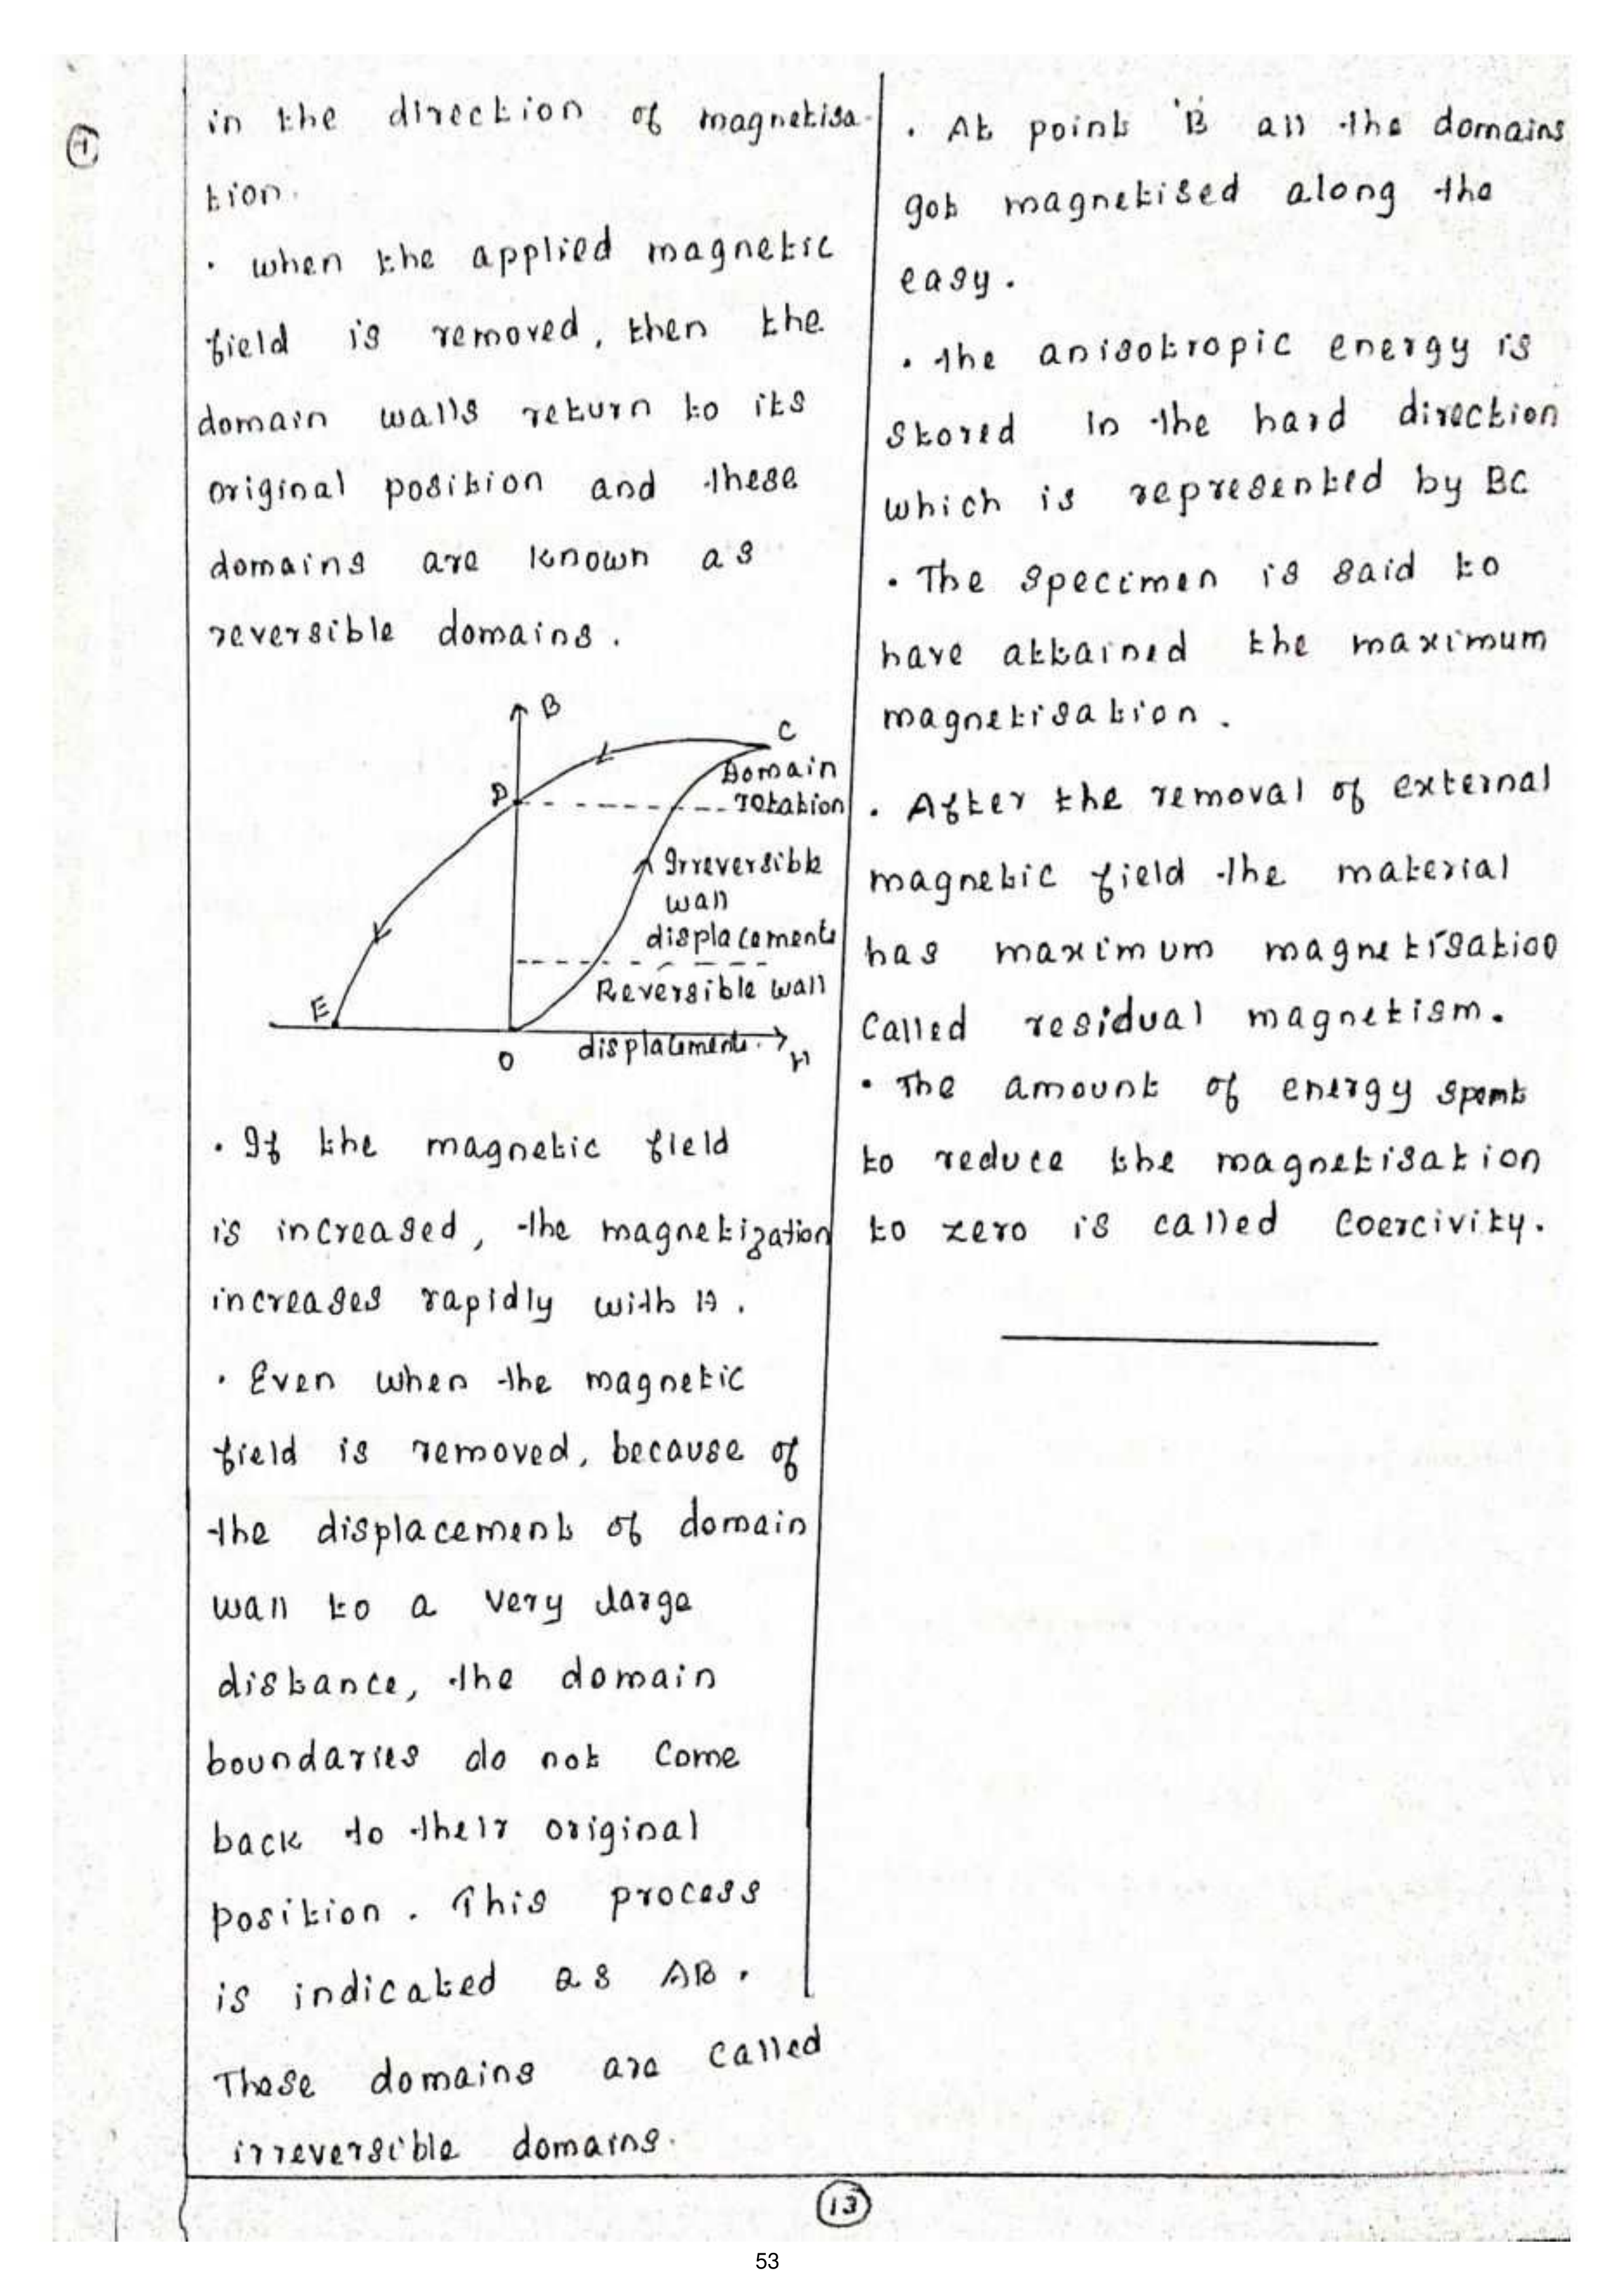 in the direction of magnetisa-
tion.
. when the applied magnetic
field is removed, then the
domain walls return to its
original position and these
domains are known as
reversible domains.
B
C
Domain
D
rotation
Irreversible
wall
displacements
Reversible wall
E
displacements.
O
H
. If the magnetic field
is increased, the magnetization
increases rapidly with H.
. Even when the magnetic
field is removed, because of
the displacement of domain
wall to a very large
distance, the domain
boundaries do not come
back to their original
position. This process
is indicated as AB.
These domains are called
irreversible domains.
. At point 'B' all the domains
got magnetised along the
easy.
. the anisotropic energy is
stored in the hard direction
which is represented by BC
. The specimen is said to
have attained the maximum
magnetisation.
. After the removal of external
magnetic field the material
has maximum magnetisation
called residual magnetism.
. The amount of energy spent
to reduce the magnetisation
to zero is called coercivity.
13
53